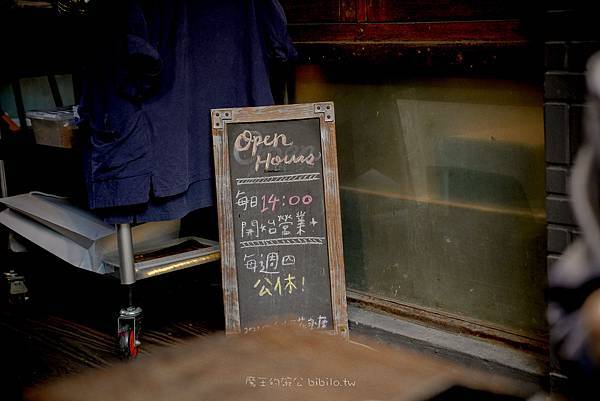 Open
Hours
每日14:00
開始營業
每週四
公休!
魔王的旅公 bibilo.tw